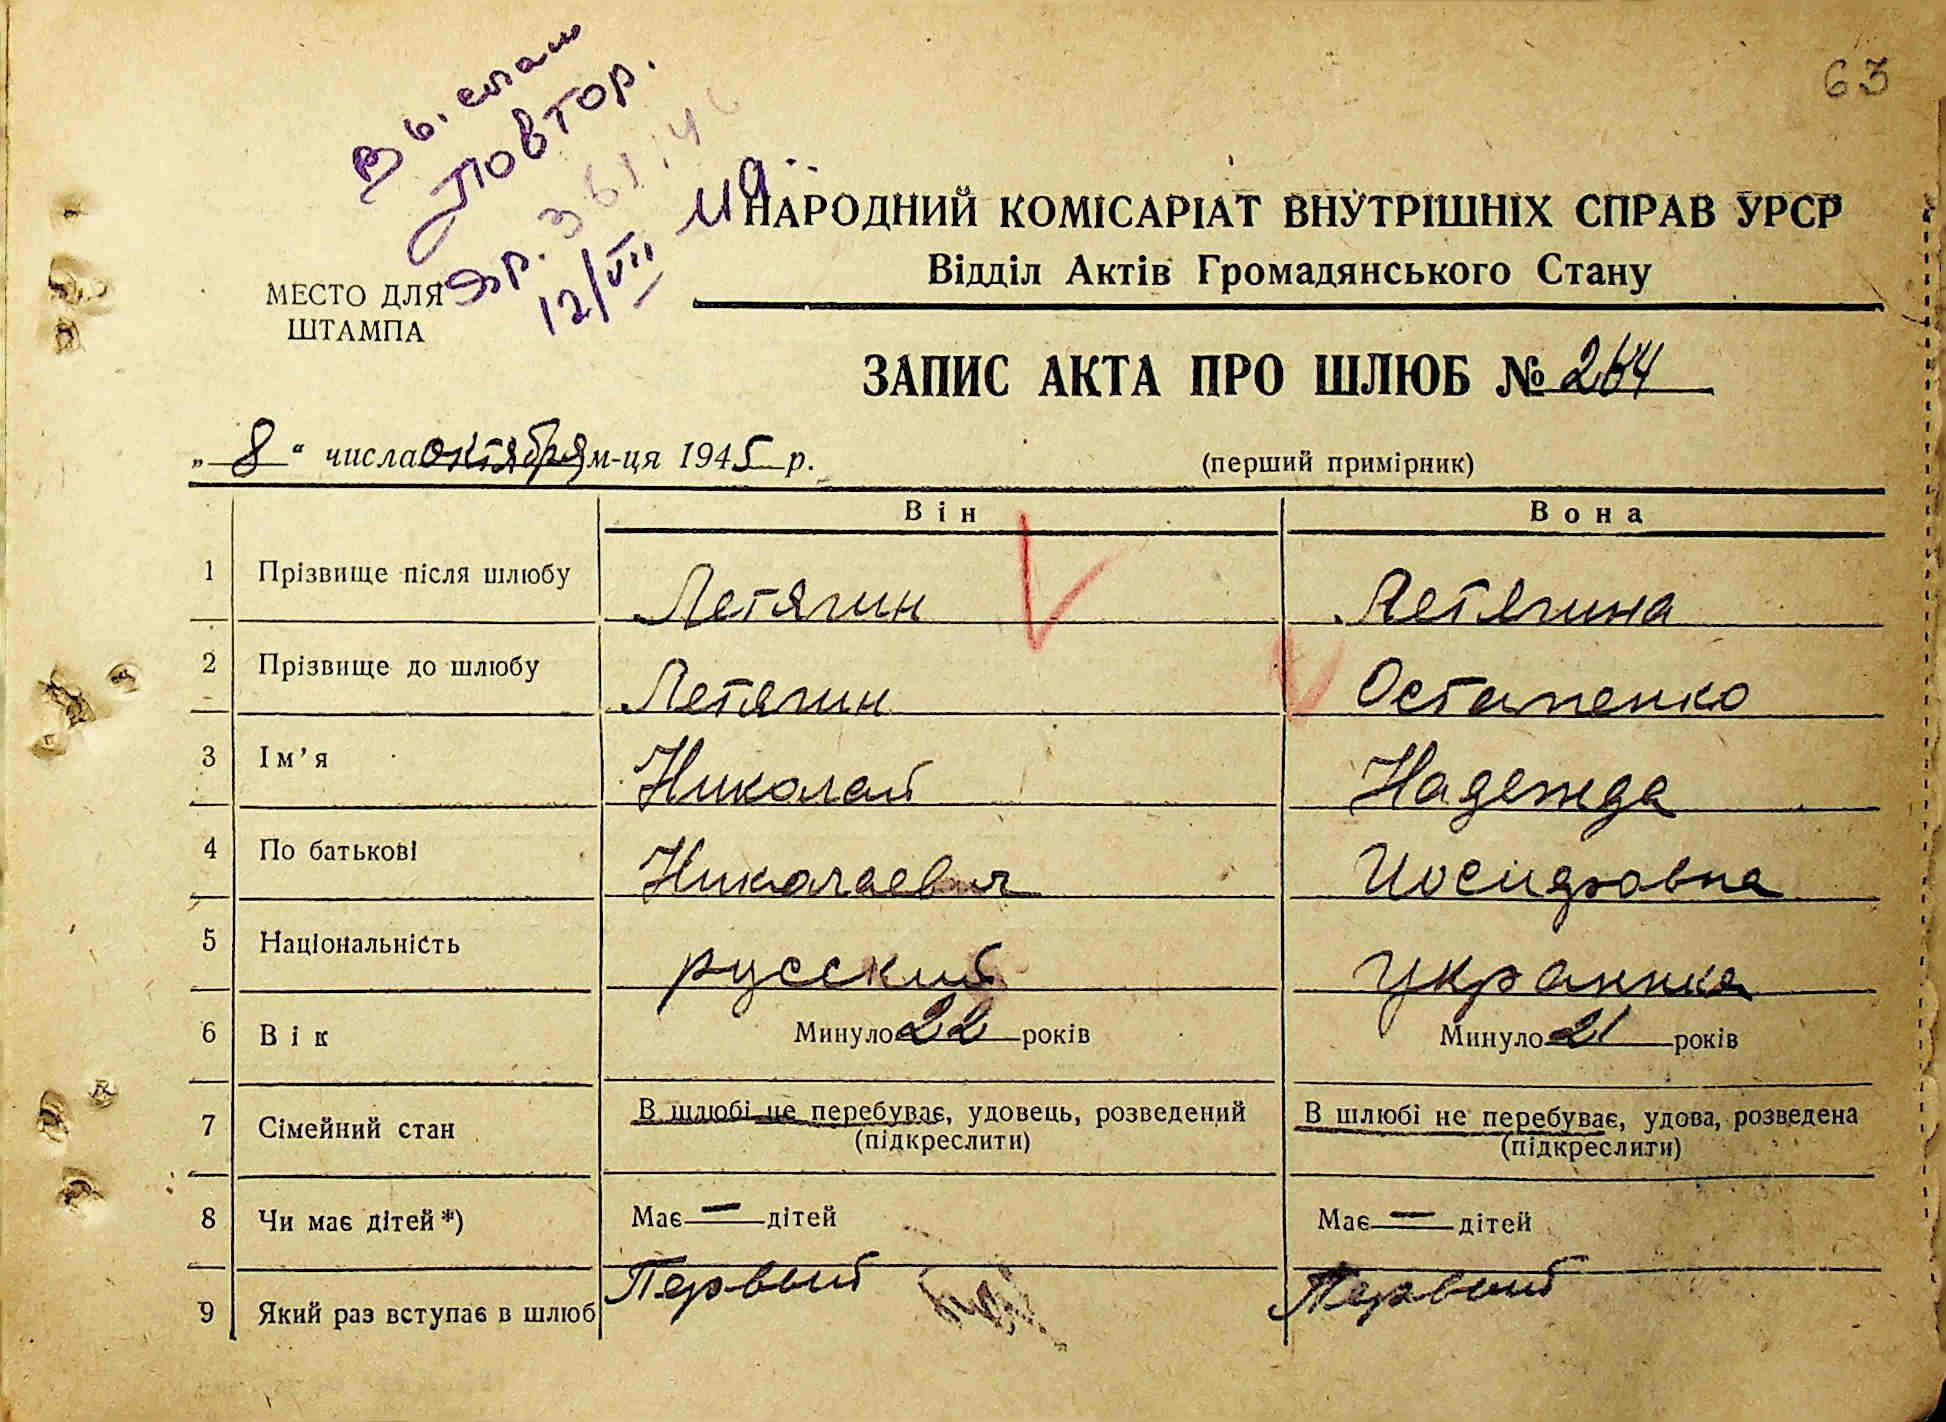 63
Повтор.
12/VII
НАРОДНИЙ КОМІСАРІАТ ВНУТРІШНІХ СПРАВ УРСР
Відділ Актів Громадянського Стану
МЕСТО ДЛЯ
ШТАМПА
ЗАПИС АКТА ПРО ШЛЮБ № 264
„ 8 “ числа октября м-ця 1945 р.
(перший примірник)
Він Вона
1 Прізвище після шлюбу Летягин Летягина
2 Прізвище до шлюбу Летягин Остапенко
3 Ім'я Николай Надежда
4 По батькові Николаевич Иосифовна
5 Національність русский украинка
6 Вік Минуло 22 років Минуло 21 років
7 Сімейний стан В шлюбі не перебуває, удовець, розведений В шлюбі не перебуває, удова, розведена
(підкреслити) (підкреслити)
8 Чи має дітей*) Має — дітей Має — дітей
9 Який раз вступає в шлюб Первый Первый